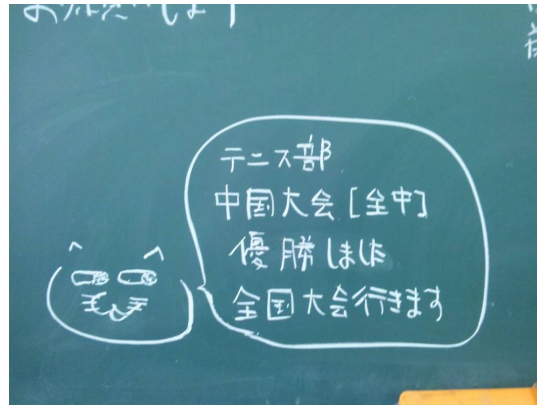 お願いします
テニス部
中国大会[全中]
優勝しました
全国大会行きます